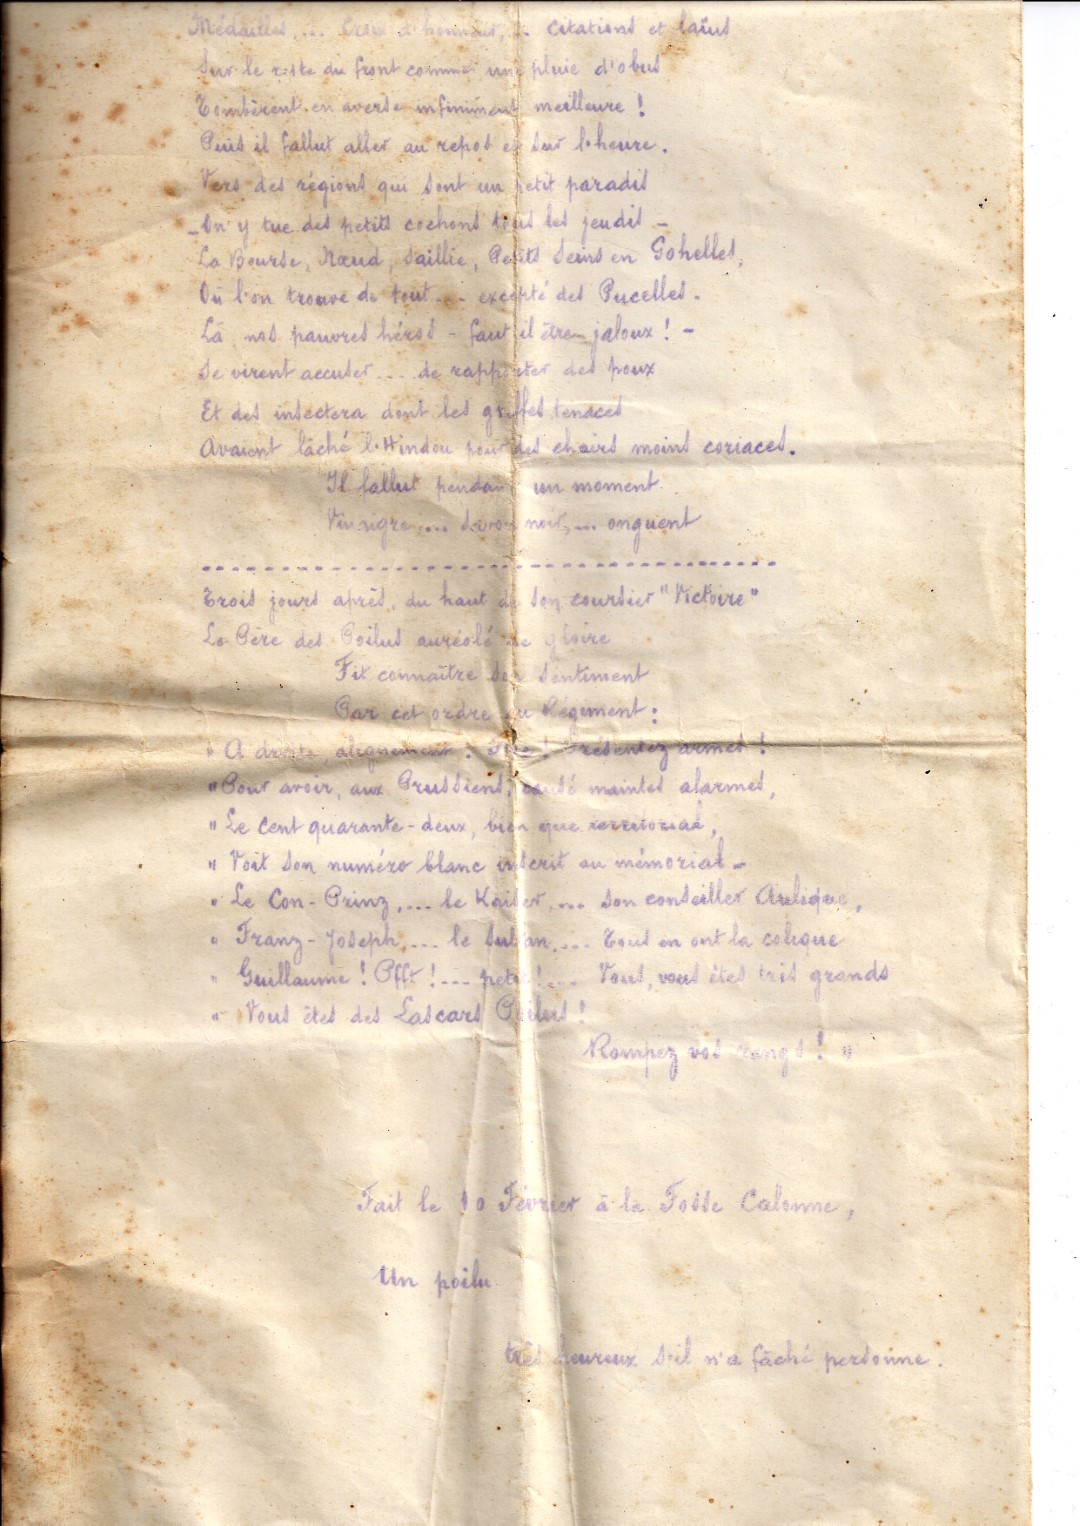 Médailles, ... Croix d'honneur, ... Citations et laïus
Sur le reste du front comme une pluie d'obus
Tombèrent en averse infiniment meilleure !
Puis il fallut aller au repos et sur l'heure.
Vers des régions qui sont un petit paradis
- On y tue des petits cochons tous les jeudis -
La Bourse, Nœud, Saillie, Petits Seins en Gohelles,
Où l'on trouve de tout ... excepté des Pucelles.
Là nos pauvres héros - faut il être jaloux ! -
Se virent accuser .... de rapporter des poux
Et des insectera dont les griffes tenaces
Avaient lâché l'Hindou pour des chairs moins coriaces.
Il fallut pendant un moment
Vinaigre, ... Savon noir, ... onguent
Trois jours après, du haut de son coursier "Victoire"
Le Père des Poilus auréolé de gloire
Fit connaître son sentiment
Par cet ordre du Régiment :
" A droite, alignement ! Fixe ! Présentez armes !
" Pour avoir, aux Prussiens, causé maintes alarmes,
" Le Cent quarante-deux, bien que territorial,
" Voit son numéro blanc inscrit au mémorial -
" Le Con-Prinz, ... le Kaiser, ... son conseiller Aulique,
" Franz-Joseph, ... le Sultan, ... Tous en ont la colique
" Guillaume ! Pfft ! ... ! ... Vous, vous êtes très grands
" Vous êtes des Lascars Poilus !
Rompez vos rangs ! "
Fait le 10 Février à la Fosse Calonne,
Un poilu
très heureux s'il n'a fâché personne.